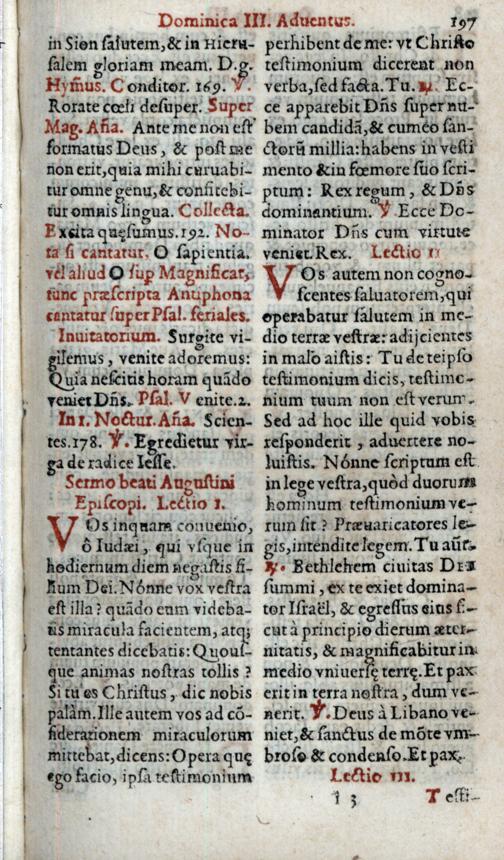 Dominica III. Aduentus. 197
in Sion salutem, & in Hieru-
salem gloriam meam. D.g.
Hymus. Conditor. 169. ℣.
Rorate cœli desuper. Super
Mag. Aña. Ante me non est
formatus Deus, & post me
non erit, quia mihi curuabi-
tur omne genu, & confitebi-
tur omnis lingua. Collecta.
Excita quęsumus. 192. No-
ta si cantatur. O sapientia.
vel aliud O sup Magnificat,
tunc præscripta Antiphona
cantatur super Psal. feriales.
Inuitatorium. Surgite vi-
gilemus, venite adoremus:
Quia nescitis horam quãdo
veniet Dñs. Psal. Venite. 2.
In I. Noctur. Aña. Scien-
tes. 178. ℣. Egredietur vir-
ga de radice Iesse.
Sermo beati Augustini
Episcopi. Lectio I.
VOs inquam conuenio,
ô Iudæi, qui vsque in
hodiernum diem negastis fi-
lium Dei. Nónne vox vestra
est illa? quãdo eum videba-
tis miracula facientem, atq;
tentantes dicebatis: Quous-
que animas nostras tollis?
Si tu es Christus, dic nobis
palàm. Ille autem vos ad cõ-
siderationem miraculorum
mittebat, dicens: Opera quę
ego facio, ipsa testimonium
perhibent de me: vt Christo
testimonium dicerent non
verba, sed facta. Tu. ℟. Ec-
ce apparebit Dñs super nu-
bem candidã, & cum eo san-
ctorũ millia: habens in vesti
mento & in fœmore suo scri-
ptum: Rex regum, & Dñs
dominantium. ℣. Ecce Do-
minator Dñs cum virtute
veniet. Rex. Lectio II
VOs autem non cogno-
scentes saluatorem, qui
operabatur salutem in me-
dio terræ vestræ: adijcientes
in malo aistis: Tu de teipso
testimonium dicis, testimo-
nium tuum non est verum.
Sed ad hoc ille quid vobis
responderit, aduertere no-
luistis. Nónne scriptum est
in lege vestra, quòd duorum
hominum testimonium ve-
rum sit? Præuaricatores le-
gis, intendite legem. Tu aũt.
℟. Bethlehem ciuitas DEI
summi, ex te exiet domina-
tor Israël, & egressus eius si-
cut à principio dierum æter-
nitatis, & magnificabitur in
medio vniuersę terrę. Et pax
erit in terra nostra, dum ve-
nerit. ℣. Deus à Libano ve-
niet, & sanctus de mõte vm-
broso & condenso. Et pax.
Lectio III.
i 3 Testi-